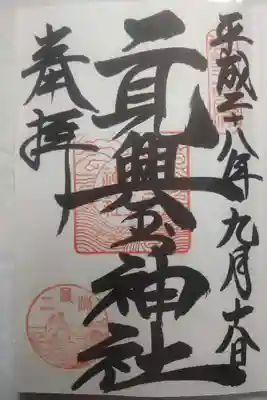 平成二十八年九月十八日
二見興玉神社
奉拝